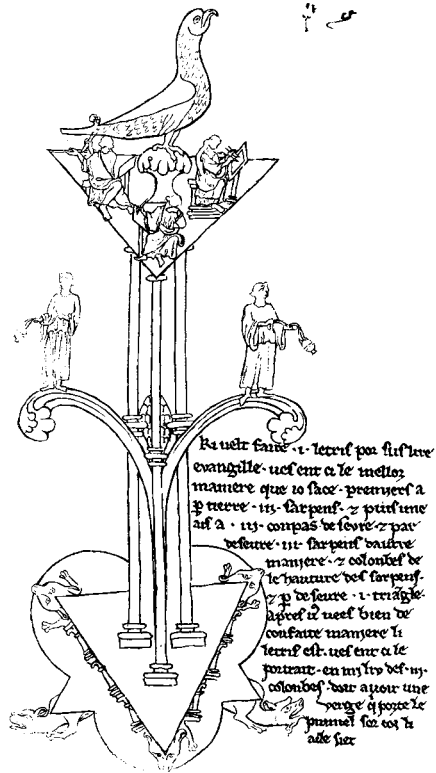 Ki velt faire .i. letris por sus lire
evangille . ves ent ci le mellor
maniere que io sace . premiers a
p tierre . iii. sarpens . 7 puis une
ais a . iii. conpas deseure . 7 par
deseure . iii. sarpens dautre
maniere . 7 colonbes de
le hauture des sarpens .
7 p deseure . i . triangle .
apres vees bien de
confaite maniere li
letris est . ves ent ci le
portrait . en mi liu des .iii.
colonbes . doit avoir une
verge q porte le
pumiel sor coi li
aile siet